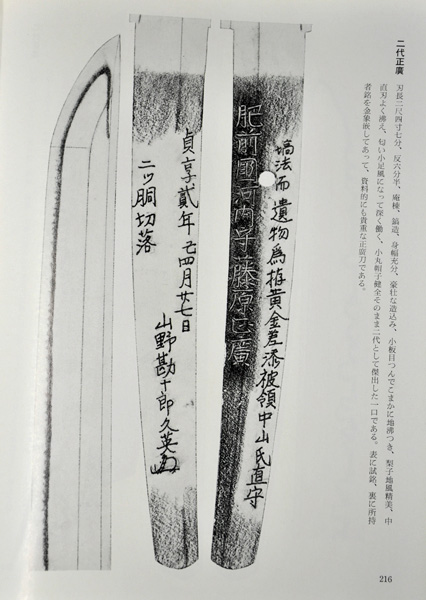 二代正廣
刃長二尺四寸七分、反六分半、庵棟、鎬造、身幅充分、豪壮な造込み、小板目つんでこまかに地沸つき、梨子地風精美、中
直刃よく沸え、匂い小足風になって深く働く。小丸帽子健全そのまま二代として傑出した一口である。表に試銘、裏に所持
者銘を金象嵌してあって、資料的にも貴重な正廣刀である。
遺物為拵黄金差添被領中山氏直守
肥前國河内守藤原正廣
貞享貳年 四月廿七日
二ッ胴切落
山野勘十郎久英
216